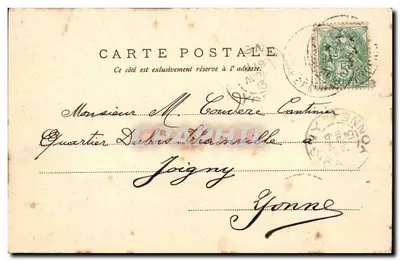 CARTE POSTALE.
Ce côté est exclusivement réservé à l'adresse.
Monsieur M. Couvere Cantinier
Quartier Dubis-Trainville
à
Joigny
Yonne